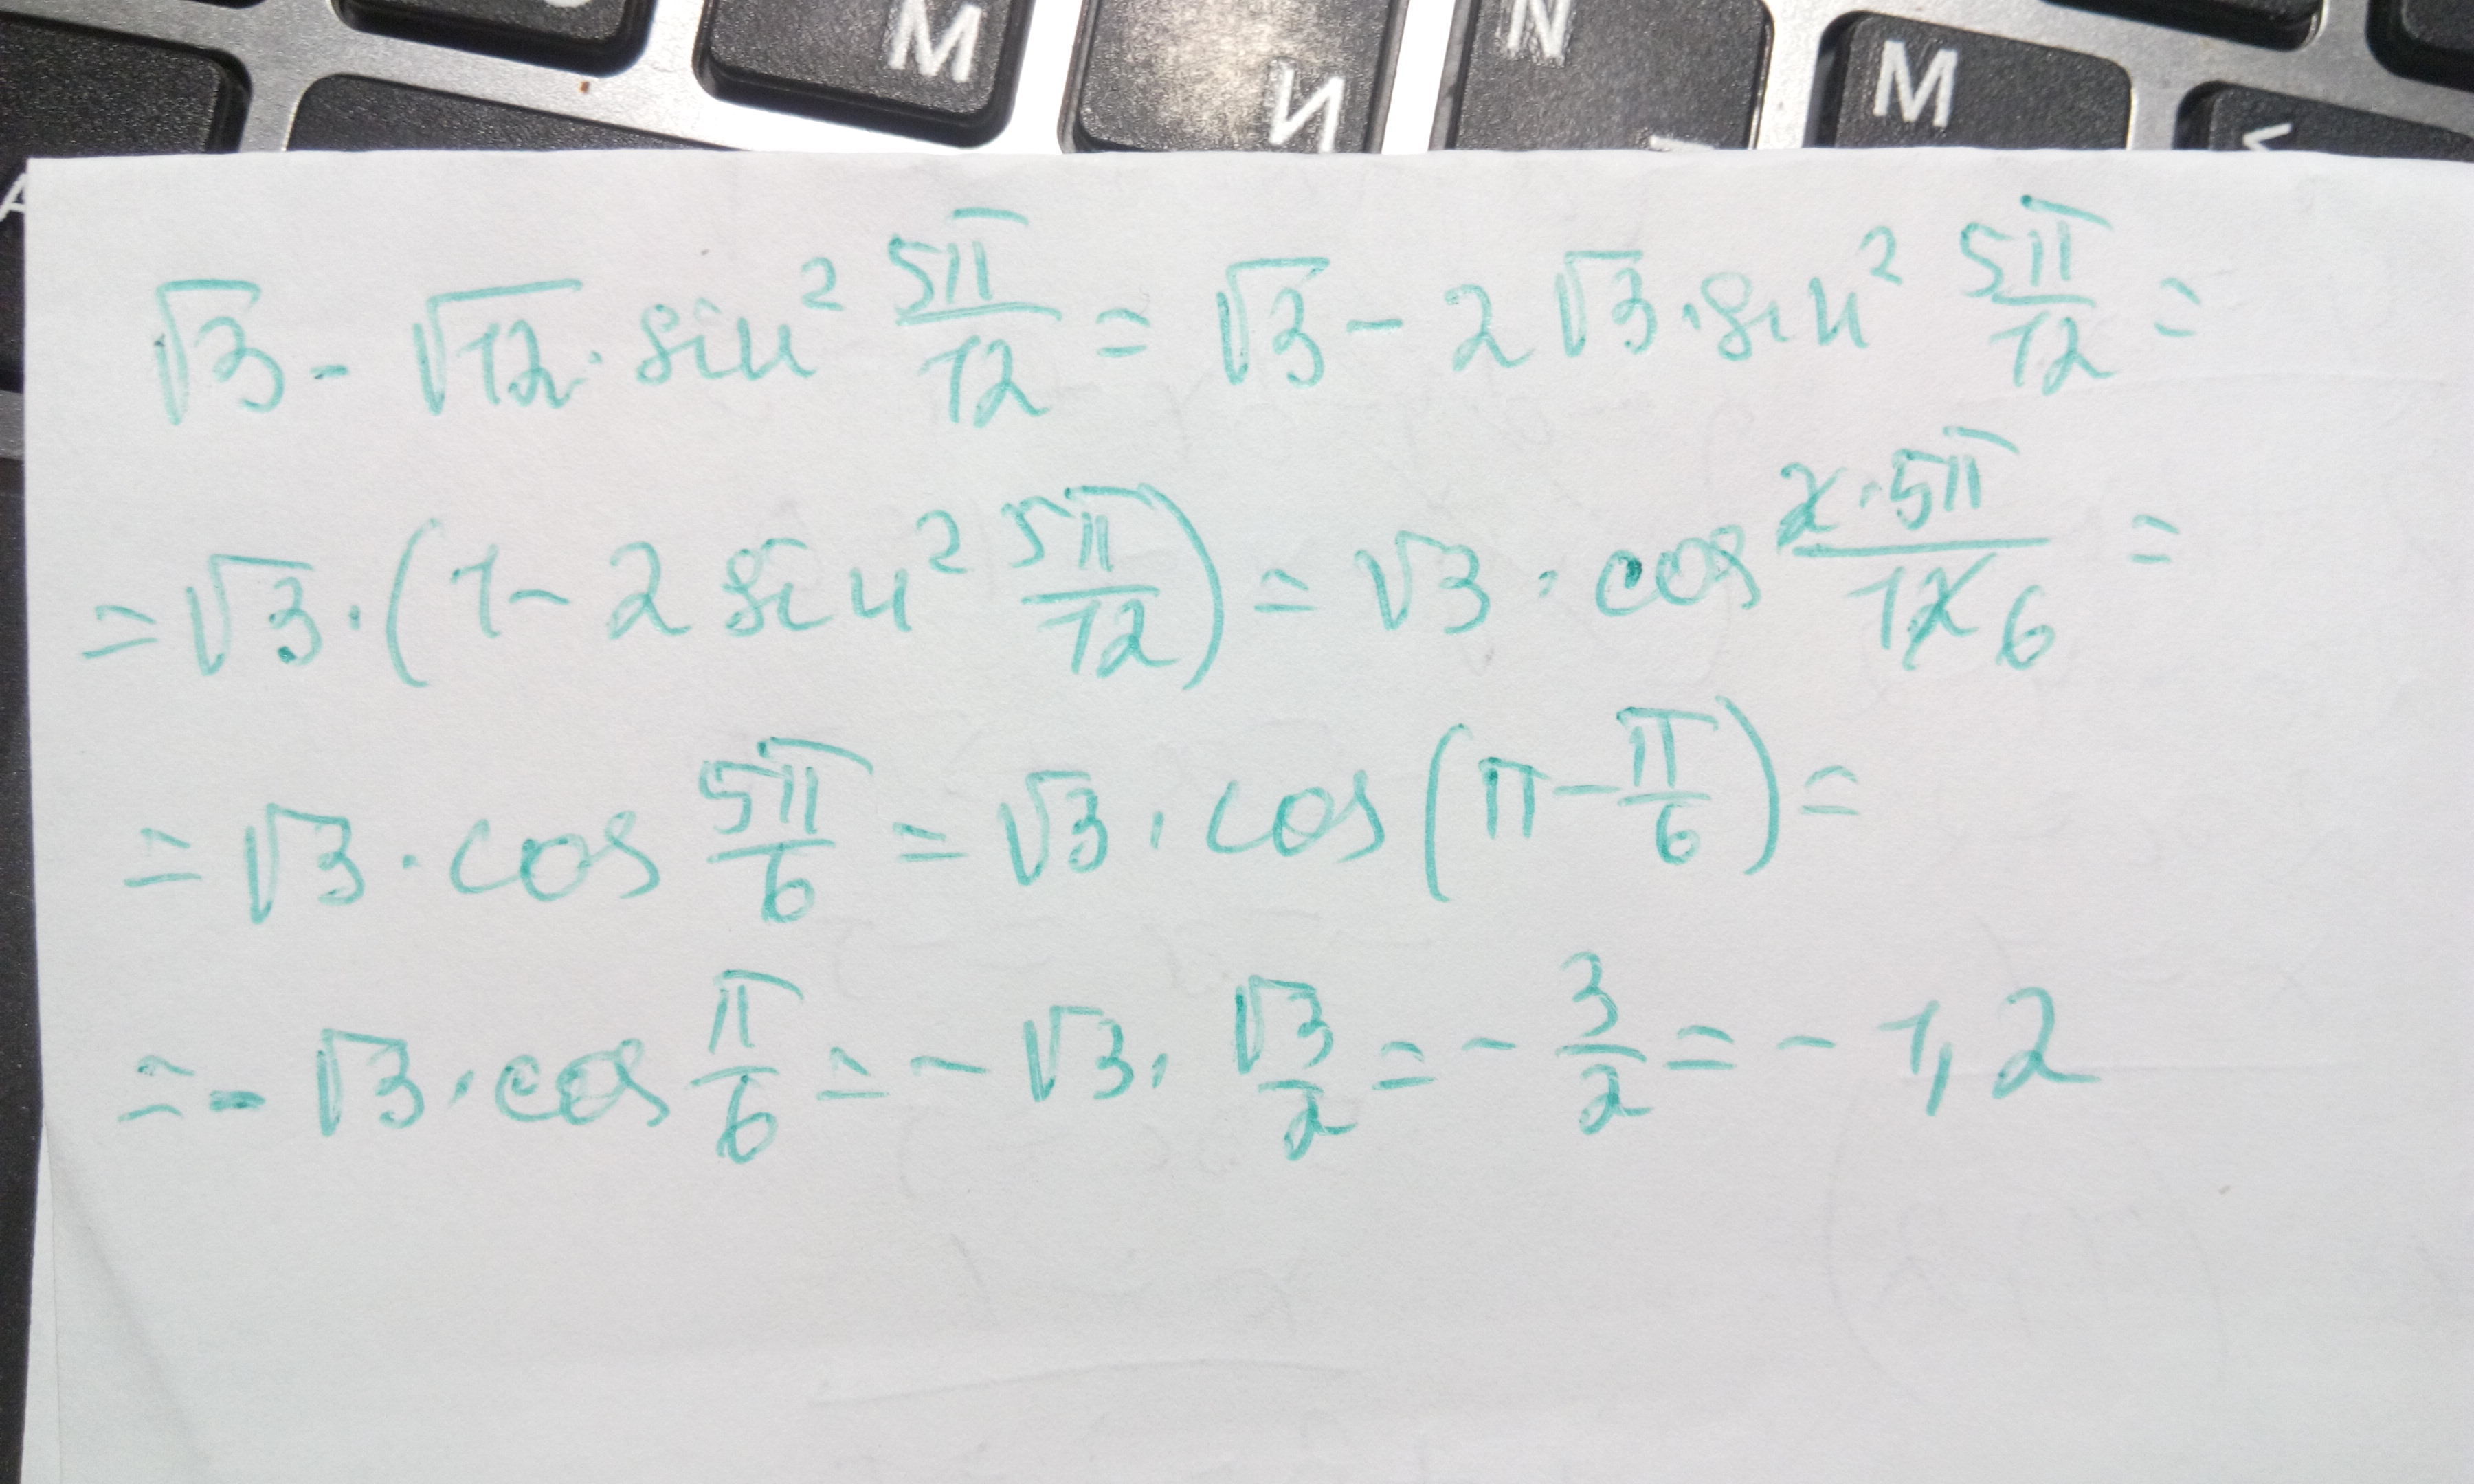 М И N M <
A
√3 - √12 · sin² 5π/12 = √3 - 2√3 · sin² 5π/12 =
= √3 · (1 - 2 sin² 5π/12) = √3 · cos 2·5π/12 6 =
= √3 · cos 5π/6 = √3 · cos (π - π/6) =
= - √3 · cos π/6 = - √3 · √3/2 = - 3/2 = - 1,2